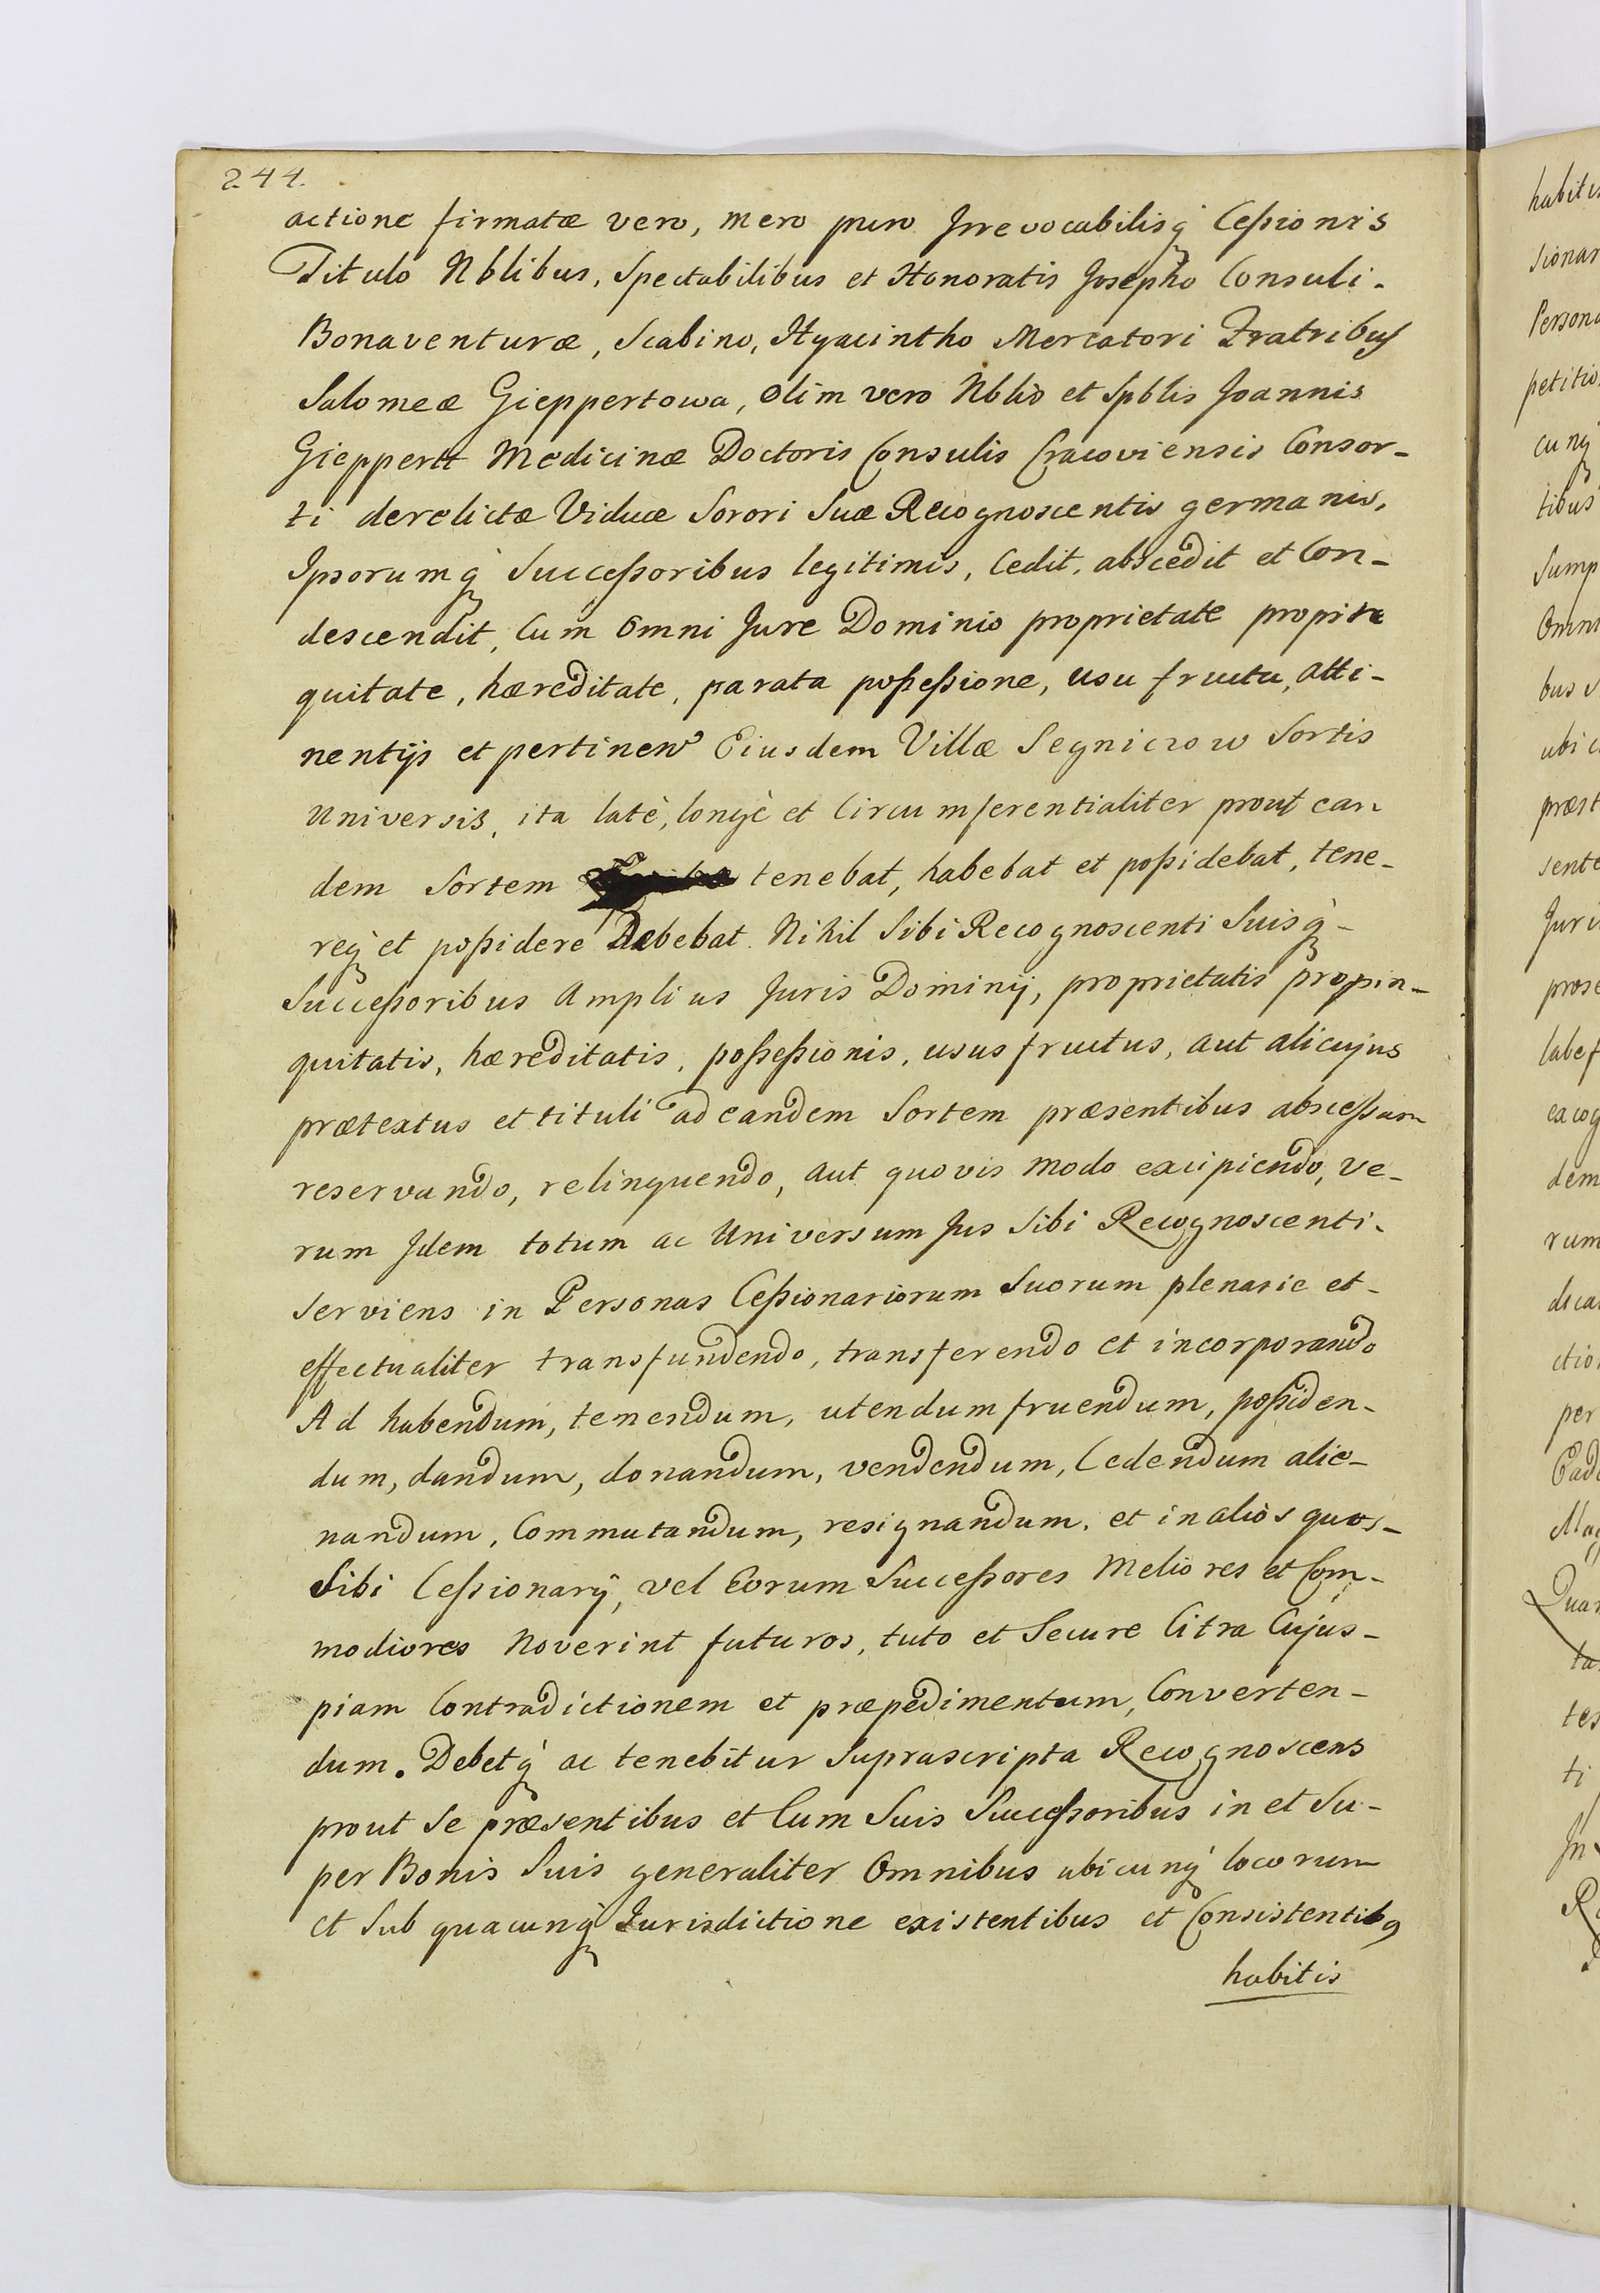 244.
actione firmatæ vero, mero puro Irrevocabilisq̀ Cessionis
Titulo Nblibus, Spectabilibus et Honoratis Josepho Consuli.
Bonaventuræ, Scabino, Hyacintho Mercatori Fratribus
Salomeæ Gieppertowa, olim vero Nblis et Spblis Joannis
Gieppertt Medicinæ Doctoris Consulis Cracoviensis Consor-
ti derelictæ Viduæ Sorori Suæ Recognoscentis germanis,
Ipsorumq̀ Successoribus legitimis, Cedit, abscedit et Con-
descendit, Cum Omni Jure Dominio proprietate propin
quitate, hæreditate, parata possessione, usu fructu, atti-
nentijs et pertinen Eiusdem Villæ Segnicrow Sortis
Universis, ita latè, longè et Circumferentialiter prout ean
dem Sortem tenebat, habebat et possidebat, tene-
req̀ et possidere Debebat. Nihil Sibi Recognoscenti Suisq̀-
Successoribus Amplius Juris Dominij, proprietatis propin-
quitatis, hæreditatis, possessionis, usus fructus, aut alicujus
prætextus et tituli ad eandem Sortem præsentibus abscessam
reservando, relinquendo, aut quovis modo excipiendo, ve-
rum Idem totum ac Universum Jus Sibi Recognoscenti-
serviens in Personas Cessionariorum Suorum plenarie et-
effectualiter transfundendo, transferendo et incorporando
Ad habendum, tenendum, utendum fruendum, possiden-
dum, dandum, donandum, vendendum, Cedendum alie-
nandum, Commutandum, resignandum, et in alios quos-
Sibi Cessionarij, vel Eorum Successores Meliores et Com-
modiores Noverint futuros, tuto et Secure Citra Cujus-
piam Contradictionem et præpedimentum, Converten-
dum. Debetq̀ ac tenebitur Suprascripta Recognoscens
prout Se præsentibus et Cum Suis Successoribus in et Su-
per Bonis Suis generaliter Omnibus ubicunq̀ locorum
et Sub quacunq̀ Jurisdictione existentibus et Consistentibq
habitis